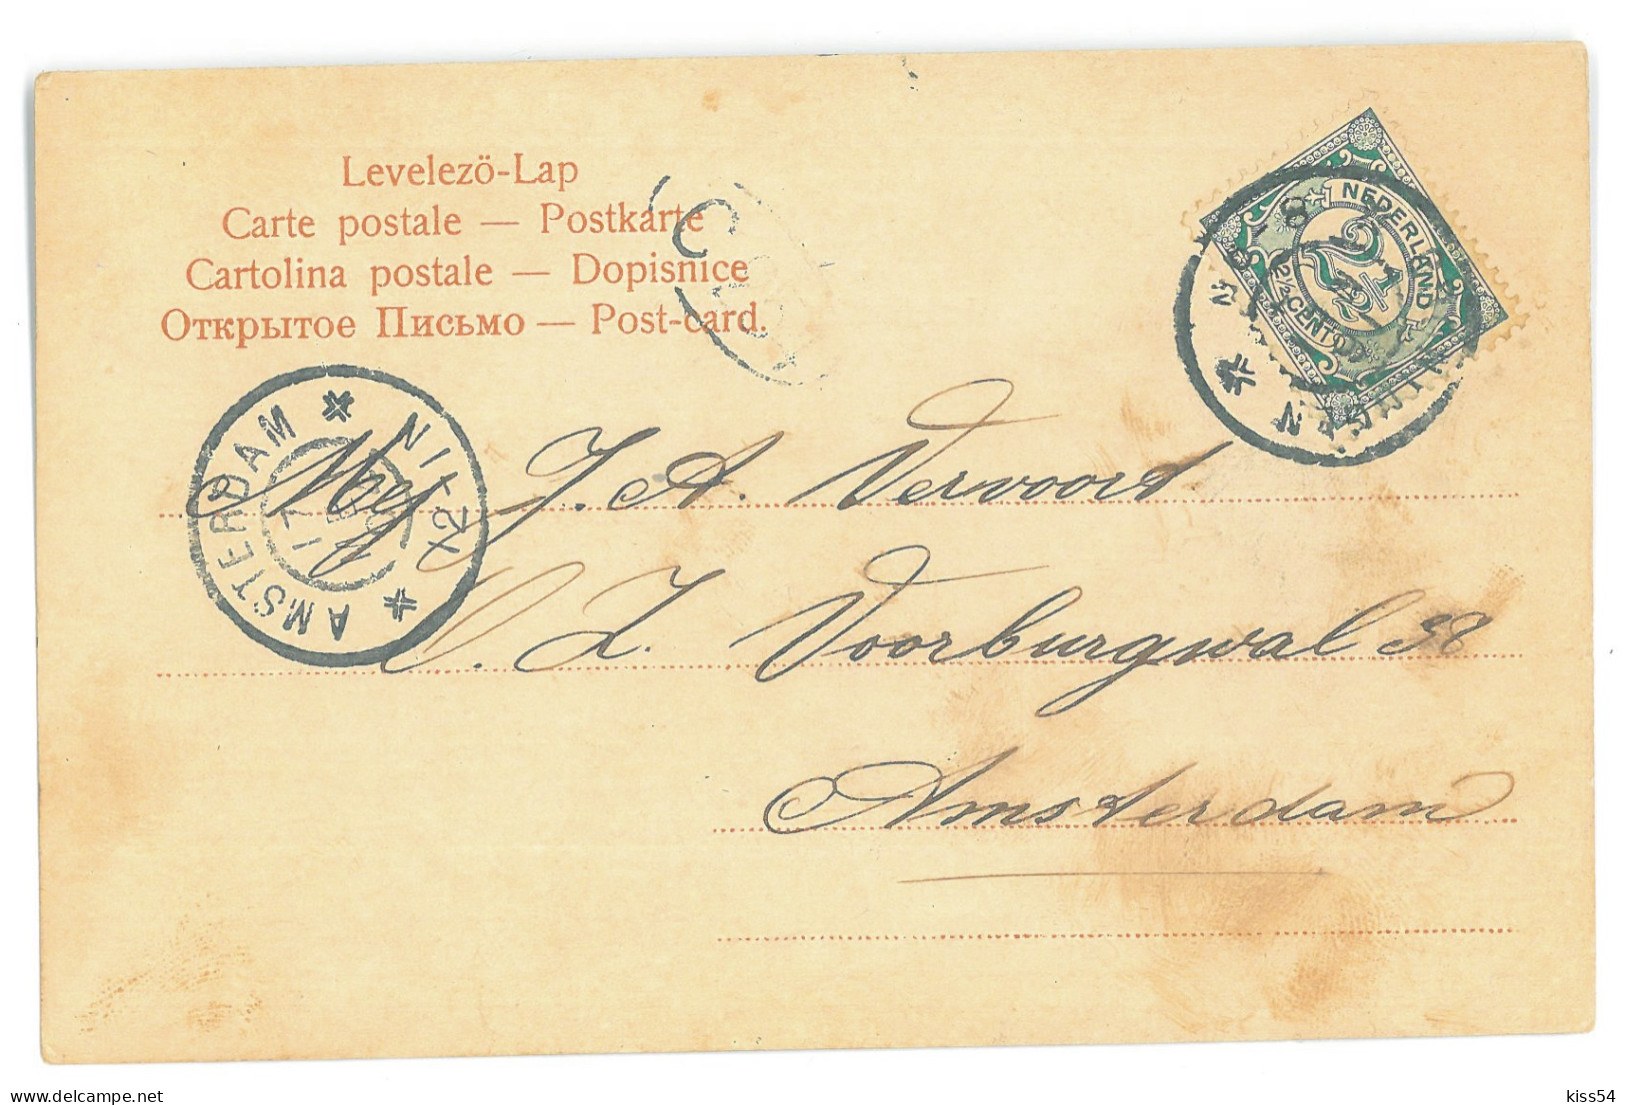 Levelező-Lap
Carte postale — Postkarte
Cartolina postale — Dopisnice
Открытое Письмо — Post-card.
NEDERLAND
2½
2½ CENT
AMSTERDAM
12-1N
17
Mej. J. A. Vervoort
O. Z. Voorburgwal 58
Amsterdam
delcampe.net
kiss54